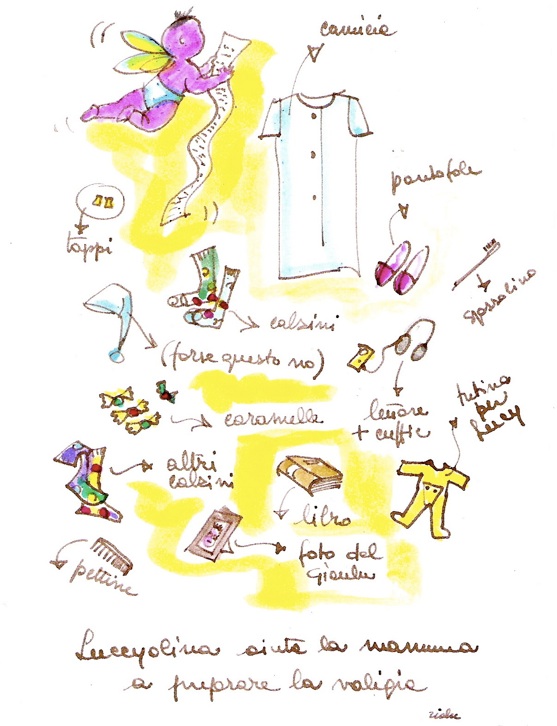 camicia
pantofole
tappi
spazzolino
calzini
(forse questo no)
caramelle
lettore
+ cuffie
tutina
per
Lucy
altri
calzini
libro
foto del
pettine
Luccyolina aiuta la mamma
a preparare la valigia